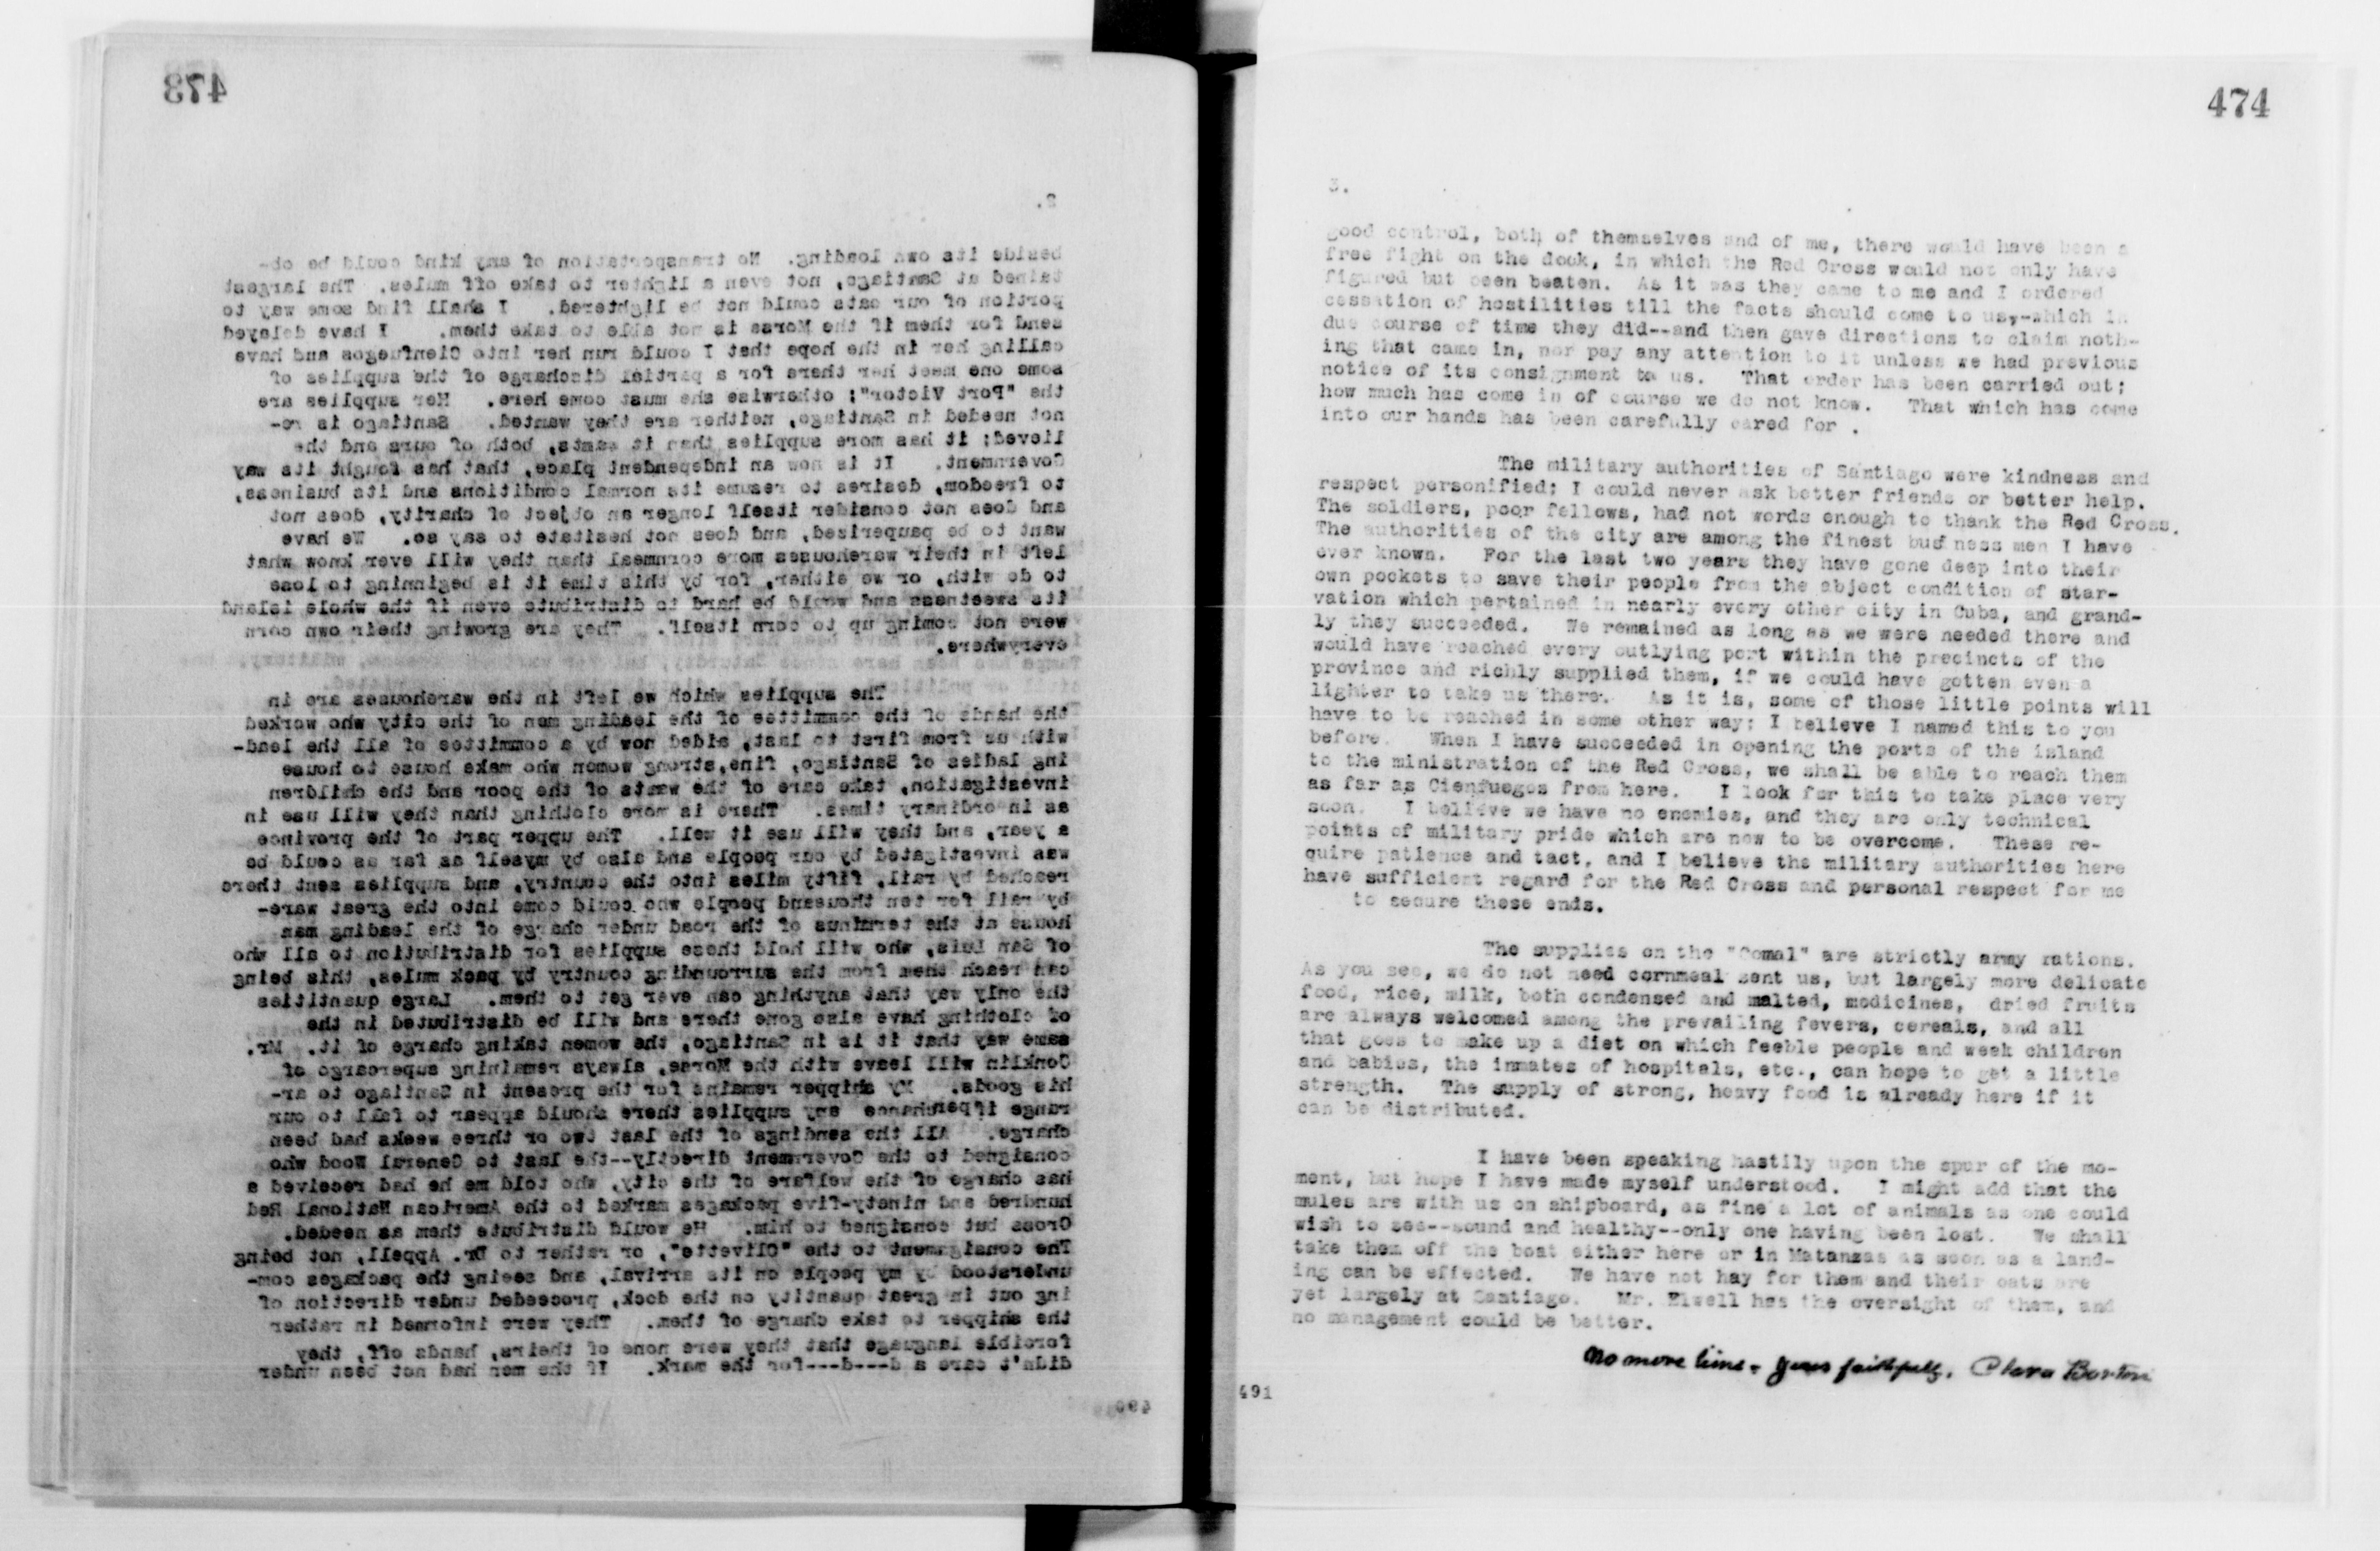 473
2.
beside its own loading. No transportation of any kind could be ob-
tained at Santiago, not even a lighter to take off mules. The largest
portion of our oats could not be lightered. I shall find some way to
send for them if the Morse is not able to take them. I have delayed
calling her in the hope that I could run her into Cienfuegos and have
some one meet her there for a partial discharge of the supplies of
the "Port Victor"; otherwise she must come here. Her supplies are
not needed in Santiago, neither are they wanted. Santiago is re-
lieved; it has more supplies than it wants, both of ours and the
Government. It is now an independent place, that has fought its way
to freedom, desires to resume its normal conditions and its business,
and does not consider itself longer an object of charity, does not
want to be pauperized, and does not hesitate to say so. We have
left in their warehouses more cornmeal than they will ever know what
to do with, or we either, for by this time it is beginning to lose
its sweetness and would be hard to distribute even if the whole island
were not coming up to corn itself. They are growing their own corn
everywhere.
The supplies which we left in the warehouses are in
the hands of the committee of the leading men of the city who worked
with us from first to last, aided now by a committee of all the lead-
ing ladies of Santiago, fine, strong women who make house to house
investigation, take care of the wants of the poor and the children
as in ordinary times. There is more clothing than they will use in
a year, and they will use it well. The upper part of the province
was investigated by our people and also by myself as far as could be
reached by rail, fifty miles into the country, and supplies sent there
by rail for ten thousand people who could come into the great ware-
house at the terminus of the road under charge of the leading man
of San Luis, who will hold these supplies for distribution to all who
can reach them from the surrounding country by pack mules, this being
the only way that anything can ever get to them. Large quantities
of clothing have also gone there and will be distributed in the
same way that it is in Santiago, the women taking charge of it. Mr.
Conklin will leave with the Morse, always remaining supercargo of
his goods. My shipper remains for the present in Santiago to ar-
range if perchance any supplies there should appear to fall to our
charge. All the sendings of the last two or three weeks had been
consigned to the Government directly--the last to General Wood who
has charge of the welfare of the city, who told me he had received a
hundred and ninety-five packages marked to the American National Red
Cross but consigned to him. He would distribute them as needed.
The consignment to the "Olivette", or rather to Dr. Appell, not being
understood by my people on its arrival, and seeing the packages com-
ing out in great quantity on the dock, proceeded under direction of
the shipper to take charge of them. They were informed in rather
forcible language that they were none of theirs, hands off, they
didn't care a d---d---for the mark. If the men had not been under
490
474
3.
good control, both of themselves and of me, there would have been a
free fight on the dock, in which the Red Cross would not only have
figured but been beaten. As it was they came to me and I ordered
cessation of hostilities till the facts should come to us,--which in
due course of time they did--and then gave directions to claim noth-
ing that came in, nor pay any attention to it unless we had previous
notice of its consignment to us. That order has been carried out;
how much has come in of course we do not know. That which has come
into our hands has been carefully cared for .
The military authorities of Santiago were kindness and
respect personified; I could never ask better friends or better help.
The soldiers, poor fellows, had not words enough to thank the Red Cross.
The authorities of the city are among the finest business men I have
ever known. For the last two years they have gone deep into their
own pockets to save their people from the abject condition of star-
vation which pertained in nearly every other city in Cuba, and grand-
ly they succeeded. We remained as long as we were needed there and
would have reached every outlying port within the precincts of the
province and richly supplied them, if we could have gotten even a
lighter to take us there. As it is, some of those little points will
have to be reached in some other way; I believe I named this to you
before. When I have succeeded in opening the ports of the island
to the ministration of the Red Cross, we shall be able to reach them
as far as Cienfuegos from here. I look for this to take place very
soon. I believe we have no enemies, and they are only technical
points of military pride which are now to be overcome. These re-
quire patience and tact, and I believe the military authorities here
have sufficient regard for the Red Cross and personal respect for me
to secure these ends.
The supplies on the "Comal" are strictly army rations.
As you see, we do not need cornmeal sent us, but largely more delicate
food, rice, milk, both condensed and malted, medicines, dried fruits
are always welcomed among the prevailing fevers, cereals, and all
that goes to make up a diet on which feeble people and week children
and babies, the inmates of hospitals, etc., can hope to get a little
strength. The supply of strong, heavy food is already here if it
can be distributed.
I have been speaking hastily upon the spur of the mo-
ment, but hope I have made myself understood. I might add that the
mules are with us on shipboard, as fine a lot of animals as one could
wish to see--sound and healthy--only one having been lost. We shall
take them off the boat either here or in Matanzas as soon as a land-
ing can be effected. We have not hay for them and their oats are
yet largely at Santiago. Mr. Elwell has the oversight of them, and
no management could be better.
No more time - yours faithfully, Clara Barton
491